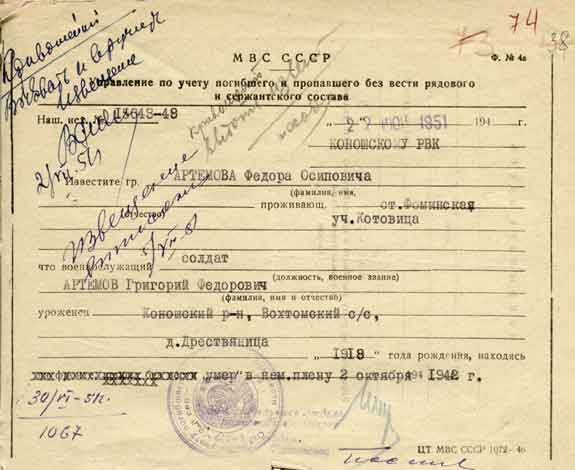 74
73
38
МВС СССР
Ф. № 4а
Управление по учету погибшего и пропавшего без вести рядового
и сержантского состава
Наш. исх. № 13643-49
"22 ИЮН 1951 194 г.
КОНОШСКОМУ РВК
Известите гр. АРТЕМОВА Федора Осиповича
(фамилия, имя,
отчество)
проживающ. ст.Фоминская
уч.Котовица
что военнослужащий солдат
(должность, военное звание)
АРТЕМОВ Григорий Федорович
(фамилия, имя и отчество)
уроженец Коношский р-н, Вохтомский с/с,
д.Дрествяница
"1918" года рождения, находясь
умер в нем.плену 2 октября 194 1942 г.
Извещение
2/VII 51.
Извещение
5/VII-51
30/VI-51г.
1067
ЦТ МВС СССР 1072-46